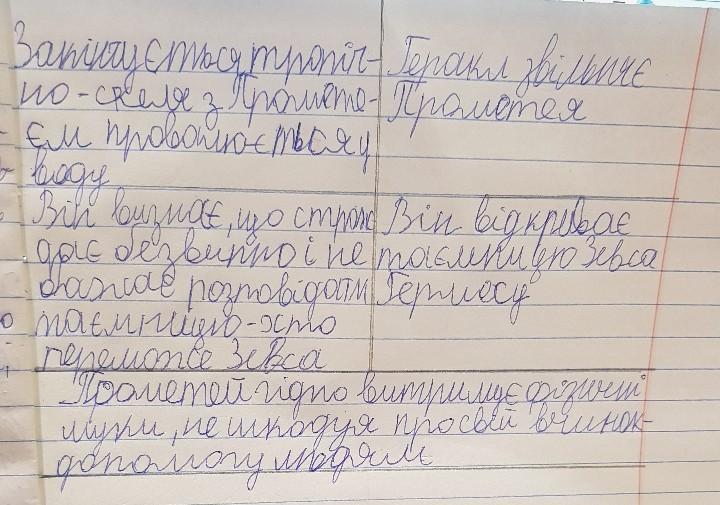 Закінчується трагіч-
но-скеля з Промете-
єм провалюється у
воду
Геракл звільняє
Прометея
Він визнає, що страж
дає безвинно і не
бажає розповідати
таємницю-хто
переможе Зевса
Він відкриває
таємницю Зевса
Гермесу
Прометей гідно витримує фізичні
муки, не шкодуя про свій вчинок-
допомогу людям